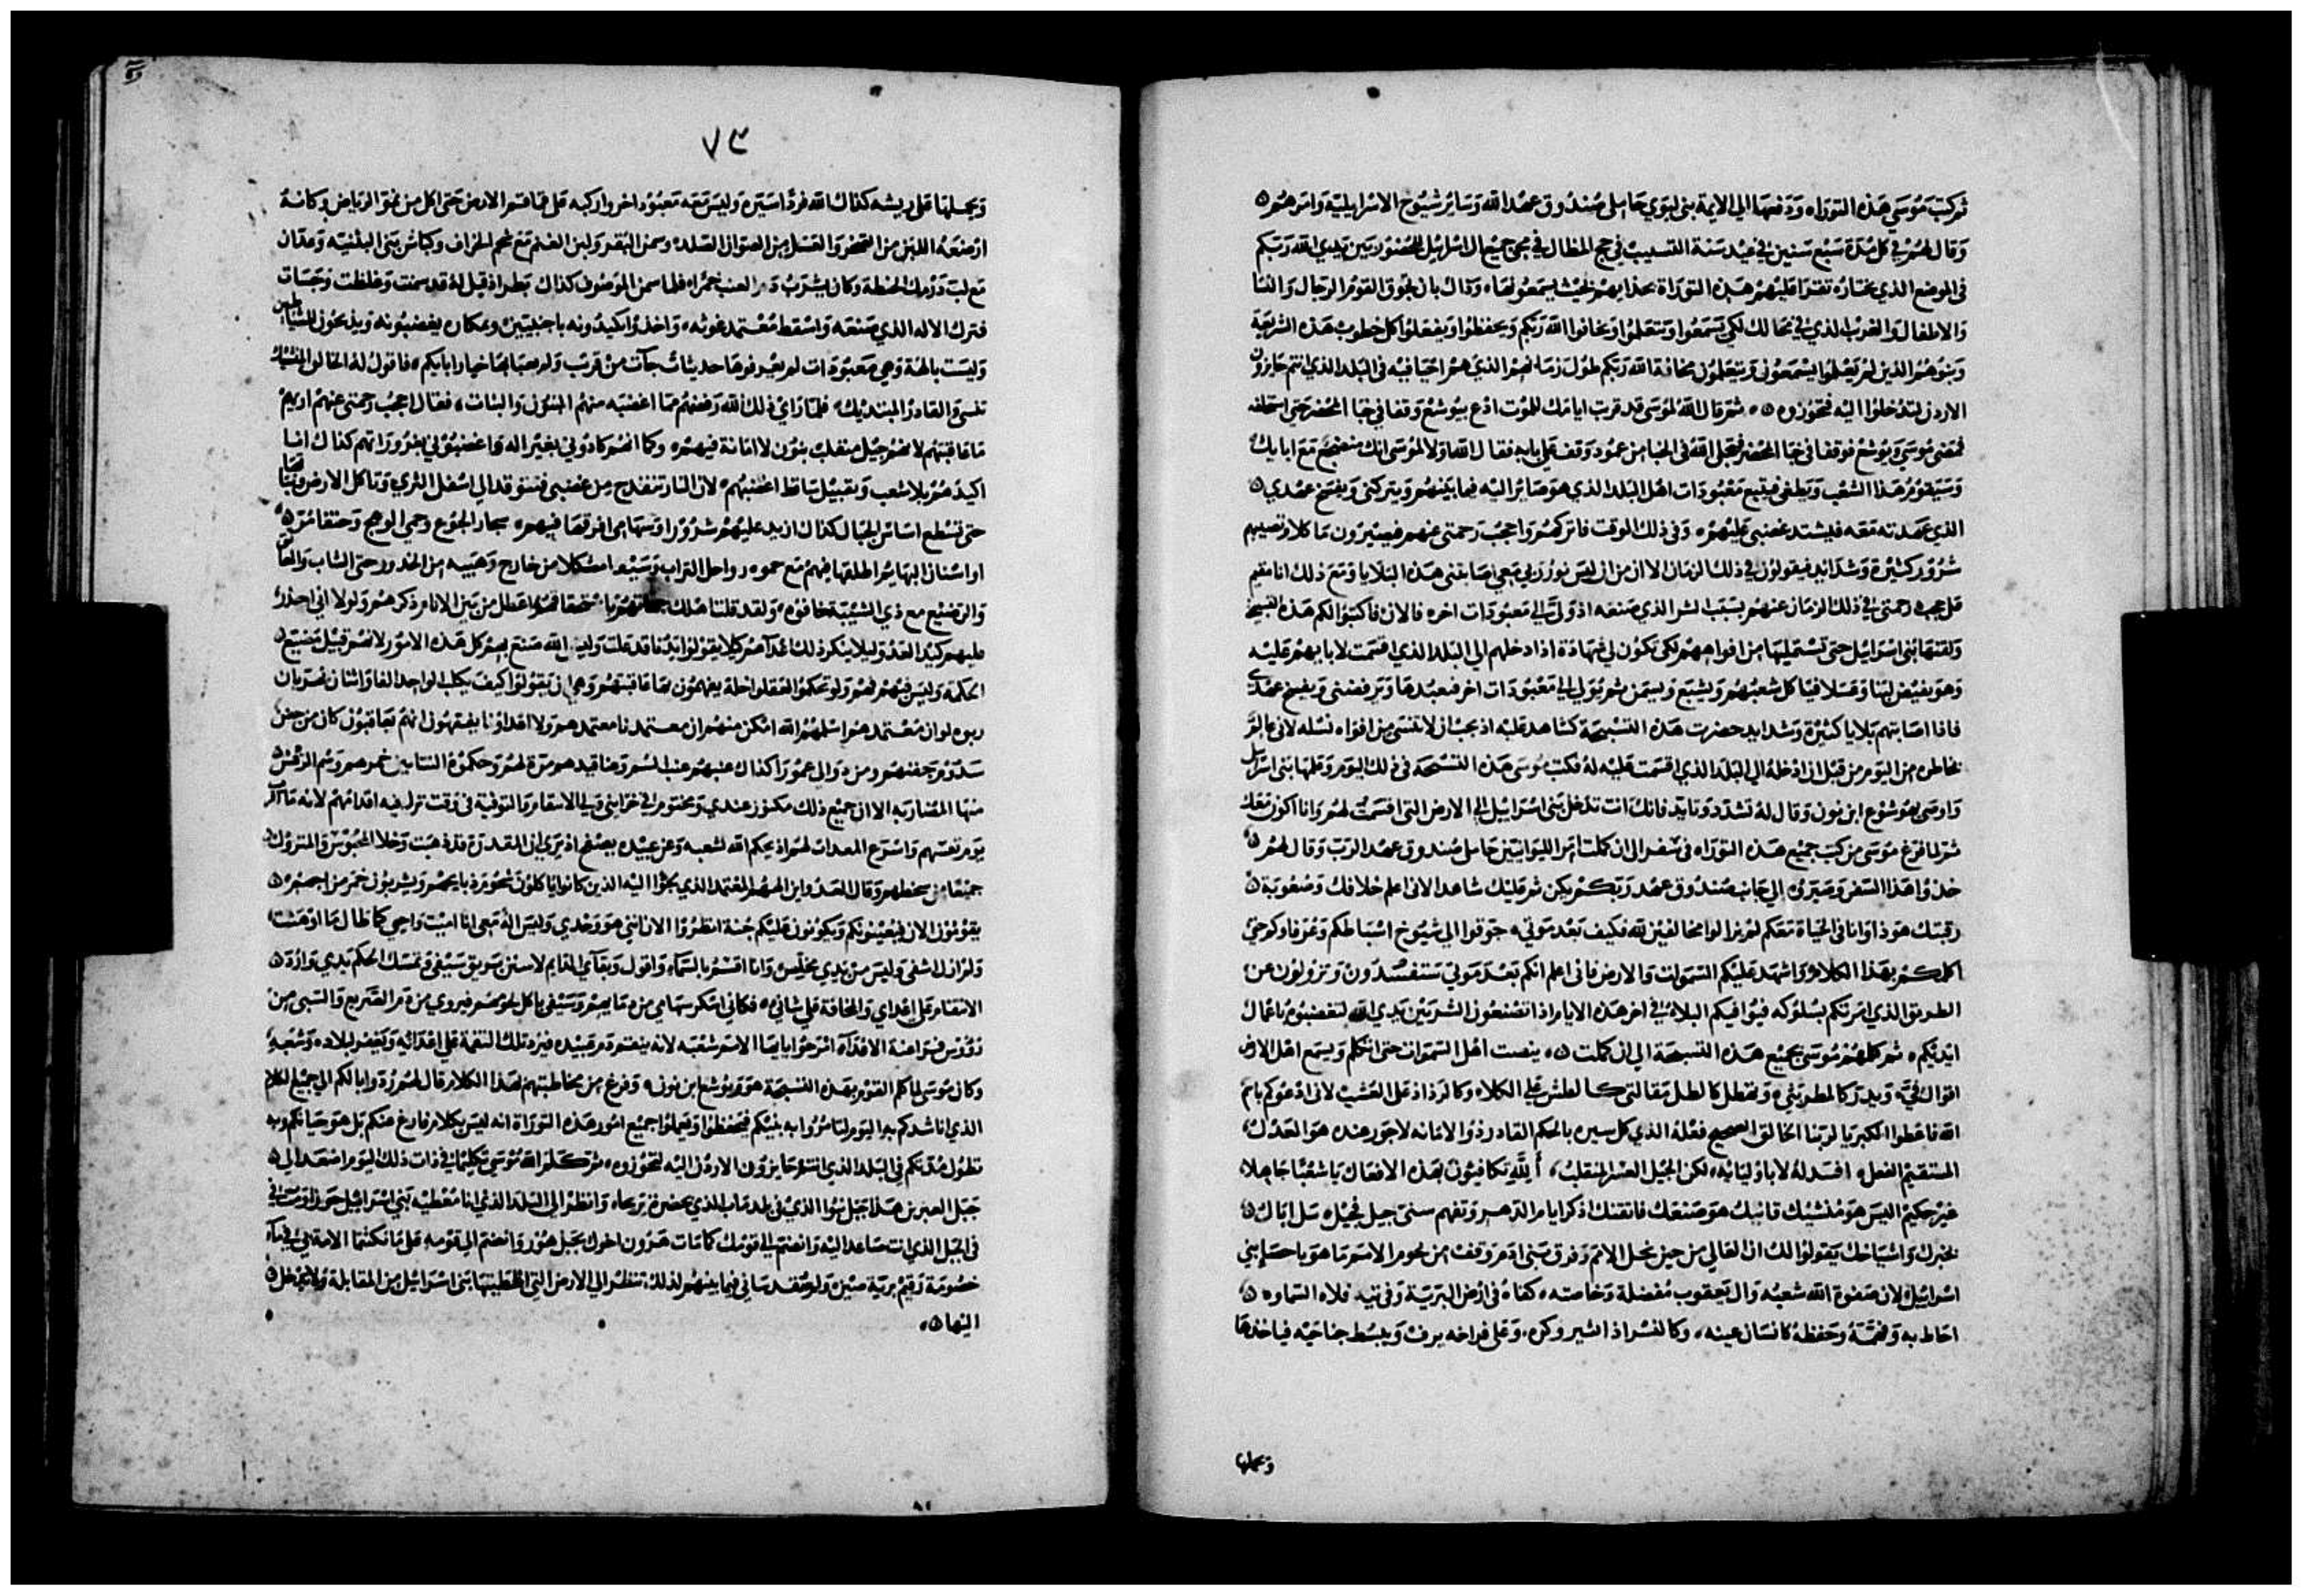 ثم كتب موسي هذه التوراه ودفعها الي الايمة بني ليوي حاملي صندوق عهد الله وسائر شيوخ الاسرايلية وامرهم
وقال لهم في كل مدة سبع سنين في عيد سنة التسييب في حج المظال في مجي جميع ال اسرائيل للحضور بين يدي الله ربكم
في الموضع الذي يختاره تقرا عليهم هذه التوراة بحذايهم بحيث يسمعونها وذاك بان تجوق القوم الرجال والنسا
والاطفال والغريب الذي في محالك لكي يسمعوا ويتعلموا ويخافوا الله ربكم ويحفظوا ويفعلوا كل خطوب هذه الشريعة
وبنوهم الذين لم يعلموا يسمعون ويتعلمون مخافة الله ربكم طول زمانهم الذي هم احيا فيه في البلد الذي انتم جايزون
الاردن لتدخلوا اليه فتحوزوه ثم قال الله لموسي قد قربت ايامك للموت ادع بيوشع وقفا في خبا المحضر حتي استخلفه
فمضي موسي ويوشع فوقفا في خبا المحضر فتجلي الله في الخبا من عمود وقف علي بابه فقال الله اولا لموسي انك منضجع مع ابايك
وسيقوم هذا الشعب ويطغي فيتبع معبودات اهل البلد الذي هو صائر اليه فيما بينهم ويتركني ويفسخ عهدي
الذي عهدته معه فيشتد غضبي عليهم وفي ذلك الوقت فاتركهم واحجب رحمتي عنهم فيصيرون ماكلا وتصيبهم
شرور كثيرة وشدائد فيقولون في ذلك الزمان الا ان من ان ليس نور ربي معي اصابتني هذه البلايا ومع ذلك انا مقيم
علي حجب رحمتي في ذلك الزمان عنهم بسبب الشر الذي صنعه اذ ولي الي معبودات اخره فالان فاكتبوا لكم هذه التسبيحة
ولقنها بني اسرائيل حتي تستمليها من افواههم لكي تكون لي شهادة اذا دخلهم الي البلد الذي اقسمت لابايهم عليه
وهو يفيض لبنا وعسلا فيأكل شعبهم ويشبع ويسمن ثم يولي الي معبودات اخر فيعبدها ويرفضني ويفسخ عهدي
فاذا اصابتهم بلايا كثيرة وشدايد حضرت هذه التسبيحة كشاهد عليه اذ يجب ان لا تنسي من افواه نسله لاني عالم
بخاطره من اليوم من قبل ان ادخله الي البلد الذي اقسمت عليه له فكتب موسي هذه التسبيحة في ذلك اليوم وعلمها بني اسرايل
واوصي يوشوع ابن نون وقال له تشدد وتايد فانك انت تدخل بني اسرائيل الي الارض التي اقسمت لهم وانا اكون معك
ثم لما فرغ موسي من كتب جميع هذه التوراه في سفر الي ان كملت امر الليوانيين حاملي صندوق عهد الرب وقال لهم
خذوا هذا السفر وصيروه الي جانب صندوق عهد ربكم يكن ثم عليك شاهدا لاني اعلم خلافك وصعوبة
رقبتك هوذا وانا في الحياة معكم لم تزالوا مخالفين لله فكيف بعد موتي جوقوا الي شيوخ اسباطكم وعرفاوكم حتي
اكلمكم بهذا الكلام واشهد عليكم السموات والارض فاني اعلم انكم بعد موتي ستفسدون وتزولون عن
الطريق الذي امرتكم بسلوكه فيوافيكم البلاء في اخر هذه الايام اذ تصنعون الشر بين يدي الله لتغضبوه باعمال
ايديكم ثم كلمهم موسي بجميع هذه التسبيحة الي ان كملت ينصت اهل السموات حتي اتكلم ويسمع اهل الارض
اقوال فيّ ويدر كالمطر بثي ويهطل كالطل مقالتي كالطش علي الكلاء وكالرذاذ علي العشب لاني ادعوكم باسم
الله فاعطوا الكبريا لربنا الخالق الصحيح فعله الذي كل سيره بالحكم القادر ذو الامانه لا جور عنده هو العدل
المستقيم الفعل افسد له لا باوليائه لكن الجيل العسر المنقلب ألله تكافيون بهذه الافعال يا شعبا جاهلا
غير حكيم اليس هو منشيك قانيك هو صنعك فاتقنك اذكر ايام الدهر وتفهم سني جيل فجيل سل اباك
يخبرك واشياخك يقولوا لك ان العالي من حين نحل الامم وفرق بني ادم وقفت من تخوم الامم ما هو باحصا بني
اسرائيل لان صفوة الله شعبه وال يعقوب مفضلة وخاصته كفاه في ارض البرية وفي تيه فلاه السماوه
احاط به وفهمه وحفظه كانسان عينه وكالنسر اذا اشير وكره وعلي فراخه يرف ويبسط جناحيه فياخذها
ويحملها
٧٣
ويحملها علي ريشه كذاك الله فردا سيره وليس معه معبود اخر واركبه علي قاقسم الارض حتي اكل من نمو الرياض وكانه
ارضعه اللبن من الصخر والعسل من الصوان الصلد وسمن البقر ولبن الغنم مع شحم الخراف وكباش بني البثنيه وعدان
مع لب درمك الحنطة وكان يشرب دم العنب خمرا فلما سمن الموصوف كذاك بطر اذ قيل له قد سمنت وغلظت وجسات
فترك الاله الذي صنعه واسقط معتمد غوثه واخذوا يكيدونه باجنبيين وبمكاره يغضبونه ويذبحون للشياطين
وليست بالهة وهي معبودات لم يعرفوها حديثات جآت من قريب ولم يعباها خيار ابايكم فاقول له الخالق المنشيك
تنسي والقادر المبتديك فلما راي ذلك الله رفضهم مما اغضبه منهم البنون والبنات فقال احجب رحمتي عنهم اريهم
ما عاقبتهم لانهم جيل منقلب بنون لا امانة فيهم وكما انهم كادوني بغير اله واغضبوني بغروراتهم كذاك انا
اكيدهم بلا شعب وبقبيل ساقط اغضبهم لان النار تنقدح من غضبي فتستوقد الي اسفل الثري وتاكل الارض ونباتها
حتي تسطع اساس الجبال كذاك ازيد عليهم شرورا وسهامي افوقها فيهم بجار الجوع وحمي الوهج وحتفا مر
او اسنان البهايم اطلقها فيهم مع حمه رواحل التراب وسيف امثكلا من خارج وهيبه من الخدور حتي الشاب والعاتق
والرضيع مع ذي الشيبة خافوه
عليهم كيد العدو ليلا ينكر ذلك اعداهم كيلا يقولوا ايدنا قد علت وليس الله صنع بهم كل هذه الامور لانهم قبيل مضيع
الحكمة وليس فيهم فهم ولو تحكموا لعقلوا خلة يفهمون بها عاقبتهم وهي ان يقولوا كيف يكلب الواحد الفا واثنان يهزمان
ربوه لو ان معتمدهم اسلمهم الله امكن منهم ان معتمدنا معتمدهم ولا اعداونا يفقهون انهم يعاقبون كان من جفن
سدوم جفنهم ومن دوالي عمورا كذاك عنبهم عنب السم وعناقيدهم مرة لهم وحكموه التنانين خمرهم وسم الرقش
منها المضاربه الا ان جميع ذلك مكنوز عندي ومختوم في خزايني ولي الانتقام والتوفية في وقت تزل فيه اقدامهم لانه قريب
يوم تعسهم واسرع المعدات لهم اذ يحكم الله لشعبه وعن عبيده يصفح اذ يري ان المقدرة قد ذهبت وخلا المحبوس والمتروك
جميعا من سخطهم وقال العدو اين الههم المعتمد الذي لجؤا اليه الذين كانوا ياكلون شحوم ذبايحهم ويشربون خمر مزاجهم
يقومون الان فيعينونكم ويكونون عليكم جنة انظروا الان انني هو وحدي وليس اله معي انا اميت واحيي كما طال ما اوهنت
ولم ازل اشفي وليس من يدي مخلص وانا اقسم بالسماء واقول وبقاي القايم لاسنن بريق سيفي وتمسك الحكم يدي واؤد
الانتقام علي اعداي والمخافة علي شانيي فكاني اسكر سهامي من دمايهم وسيفي ياكل لحومهم فيروي من دم الصريع والسبي من
رؤوس فراعنة الاعداء امزحوا يا ايها الامم شعبه لانه ينتقم دم عبيده فيرد تلك النقمة علي اعدائه ويغفر لبلاده وشعبه
وكان موسي لما كلم القوم بهذه التسبيحة هو ويوشع ابن نون وفرغ من مخاطبتهم بهذا الكلام قال لهم ردوا بالكم الي جميع الكلام
الذي اناشدكم به اليوم لتامروا به بنيكم فيحفظوا ويعملوا جميع امور هذه التوراة انه ليس بكلام فارغ عنكم بل هو حياتكم وبه
تطول مدتكم في البلد الذي انتم جايزون الاردن اليه لتحوزوه ثم كلم الله موسي تكليما في ذات ذلك اليوم اصعد الي
جبل العبرين هذا جبل نبوا الذي في بلد ماب الذي بحضرة يريحاه وانظر الي البلد الذي انا معطيه بني اسرائيل حوزا ومت في
في الجبل الذي انت صاعد اليه وانضم الي قومك كما مات هرون اخوك بجبل هور وانضم الي قومه علي ما نكثتما الامة بي في مآء
خصومة رقيم برية صين ولم تقدساني فيما بينهم لذلك تنظر الي الارض التي اعطيتها بني اسرائيل من المقابلة ولا تدخل
اليها